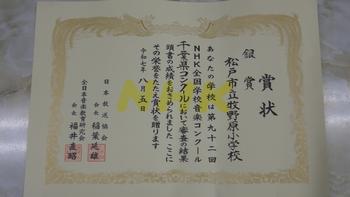 賞状
銀賞
松戸市立牧野原小学校
あなたの学校は第九十二回
NHK全国学校音楽コンクール
千葉県コンクールにおいて審査の結果
頭書の成績をおさめられました ここに
その栄誉をたたえ賞状を贈ります
令和七年八月五日
日本放送協会
会長 稲葉延雄
全日本音楽教育研究会
会長 福井直昭